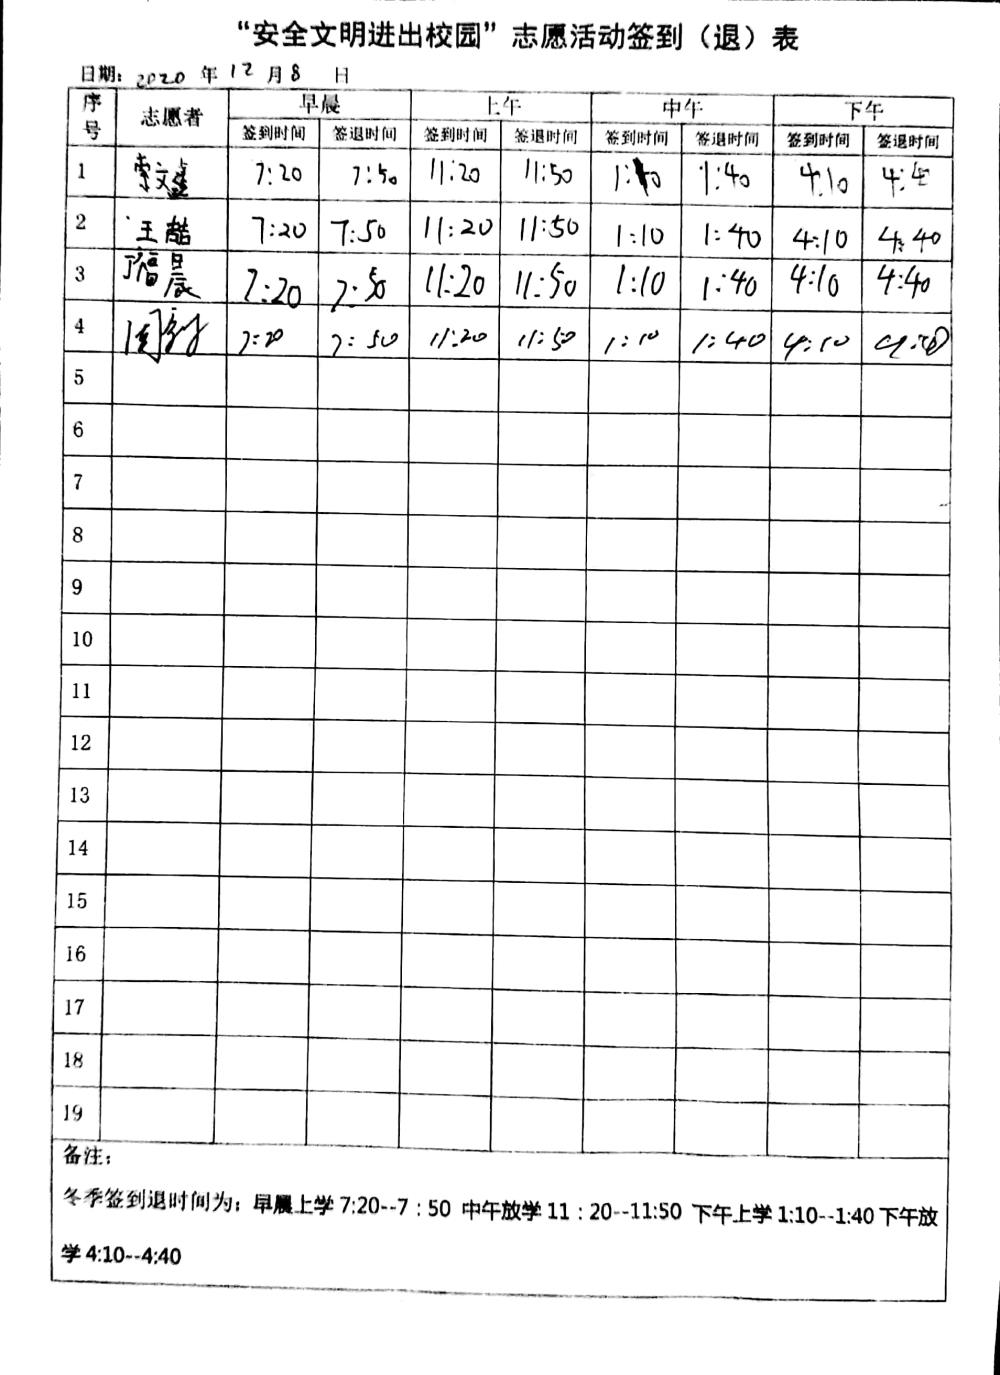 “安全文明进出校园”志愿活动签到（退）表
日期：2020 年 12 月 8 日
序号 志愿者 早晨 上午 中午 下午
签到时间 签退时间 签到时间 签退时间 签到时间 签退时间 签到时间 签退时间
1 7:20 7:50 11:20 11:50 1:40 4:10 4:4
2 王喆 7:20 7:50 11:20 11:50 1:10 1:40 4:10 4:40
3 7:20 7:50 11:20 11:50 1:10 1:40 4:10 4:40
4 7:20 7:50 11:20 11:50 1:10 1:40 4:10
5
6
7
8
9
10
11
12
13
14
15
16
17
18
19
备注：
冬季签到退时间为：早晨上学 7:20--7：50 中午放学 11：20--11:50 下午上学 1:10--1:40 下午放
学 4:10--4:40